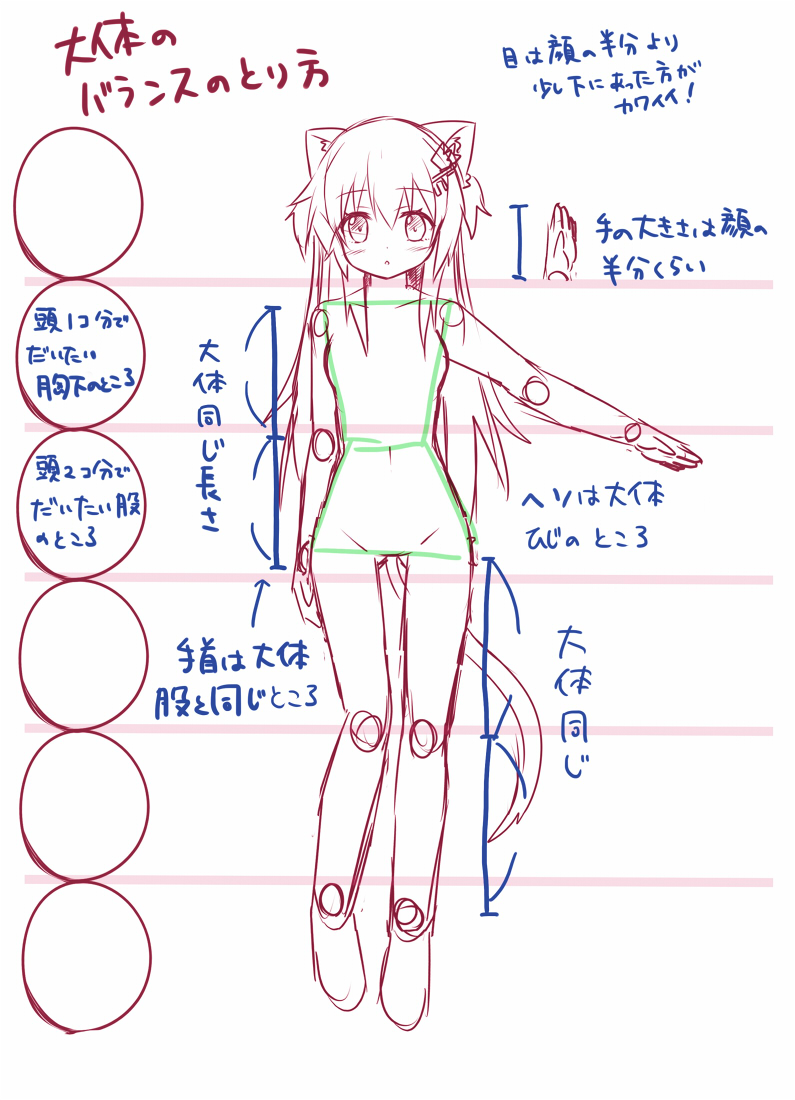 大体の
バランスのとり方
目は顔の半分より
少し下にあった方が
カワイイ!
手の大きさは顔の
半分くらい
頭1コ分で
だいたい
胸下のところ
大体同じ長さ
頭2コ分で
だいたい股
のところ
ヘソは大体
ひじの ところ
手首は大体
股と同じところ
大体同じ